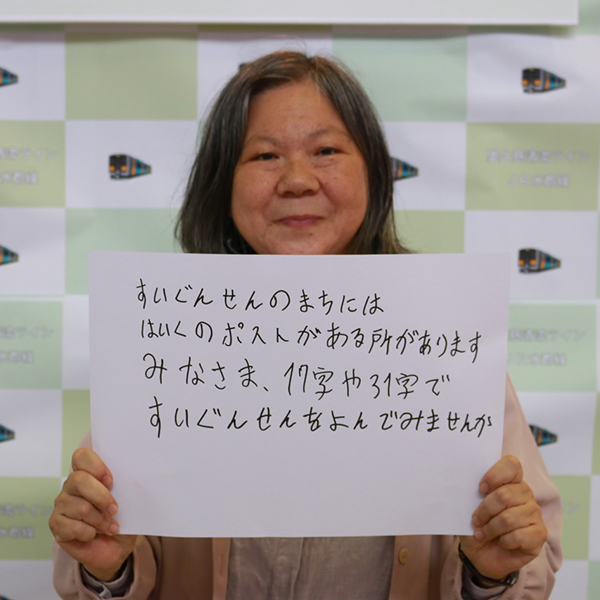 すいぐんせんのまちには
はいくのポストがある所があります
みなさま、17字や31字で
すいぐんせんをよんでみませんか